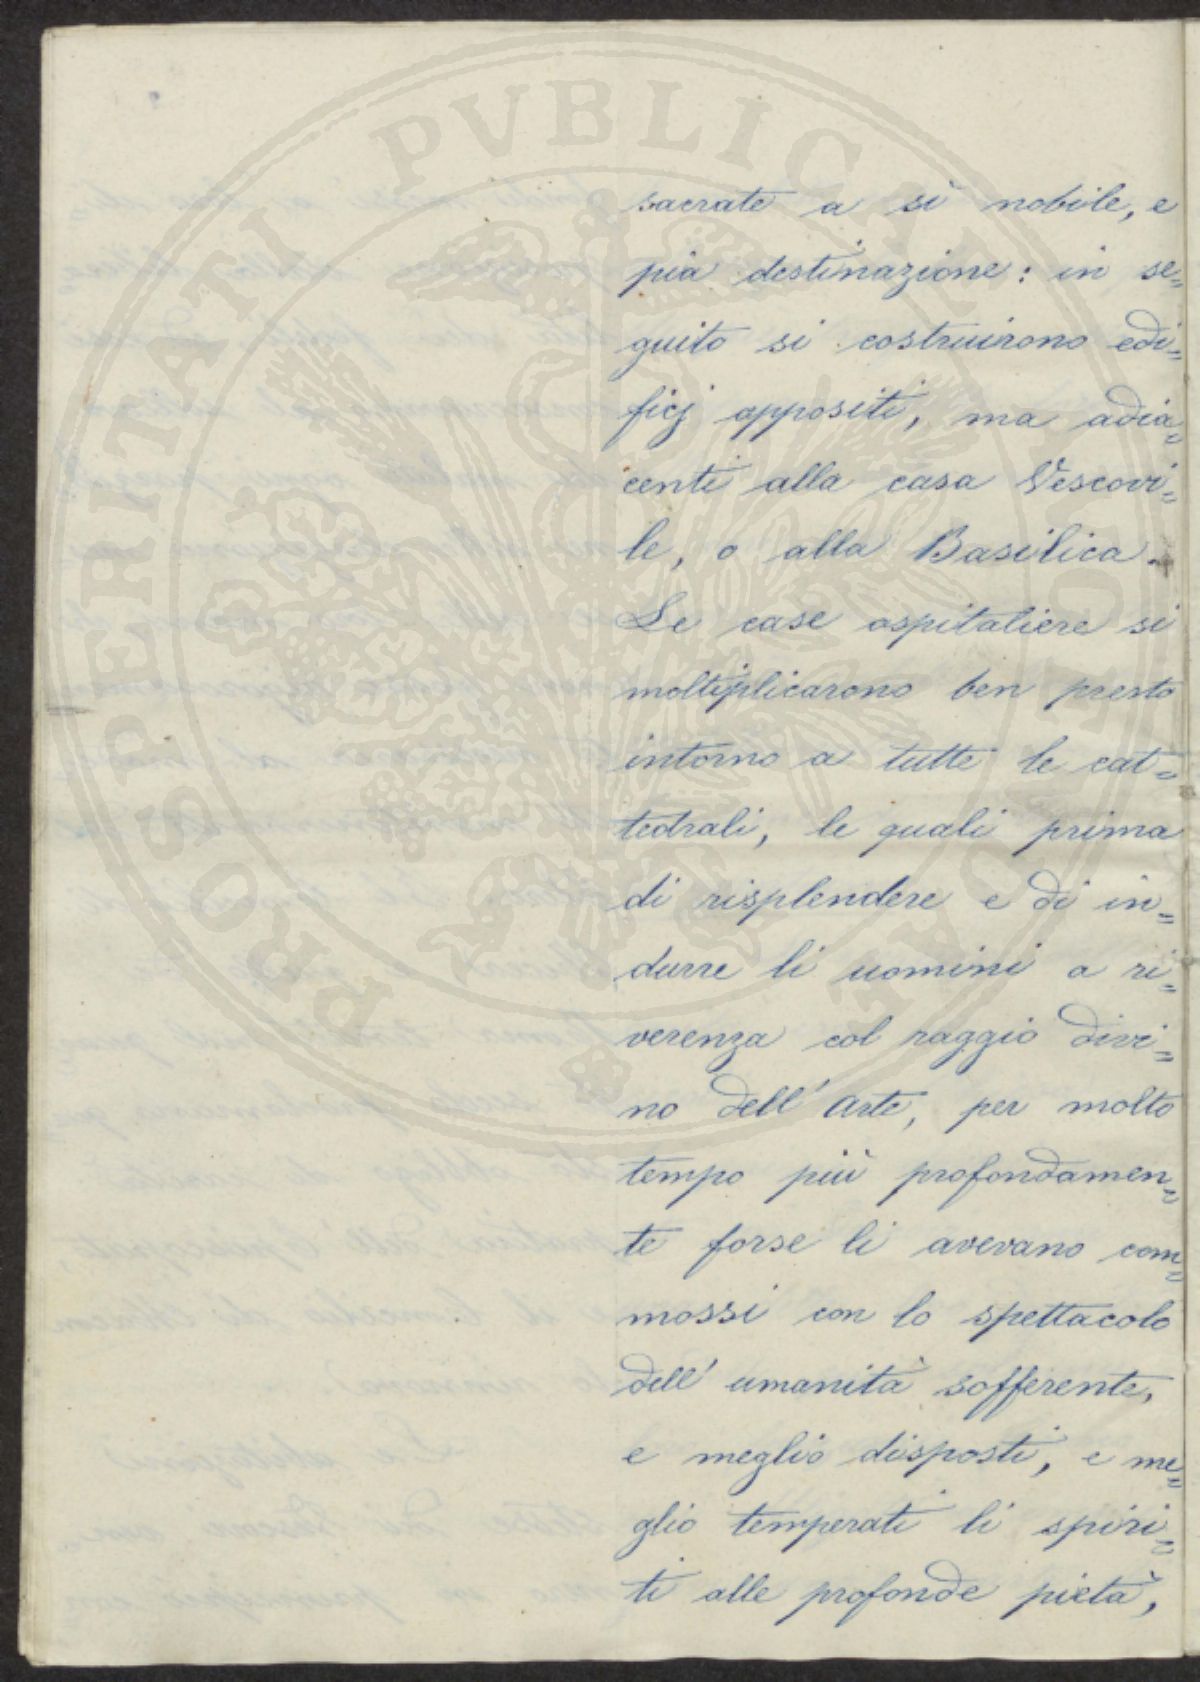 sacrate a sì nobile, e
pia destinazione: in se=
guito si costruirono edi=
ficj appositi, ma adia=
centi alla casa Vescovi=
le, o alla Basilica.
Le case ospitaliere si
moltiplicarono ben presto
intorno a tutte le cat=
tedrali, le quali prima
di risplendere e di in=
durre li uomini a ri=
verenza col raggio divi=
no dell'Arte, per molto
tempo più profondamen=
te forse li avevano com=
mossi con lo spettacolo
dell'umanità sofferente,
e meglio disposti, e me=
glio temperati li spiri=
ti alle profonde pietà,
PROSPERITATI PVBLICAE